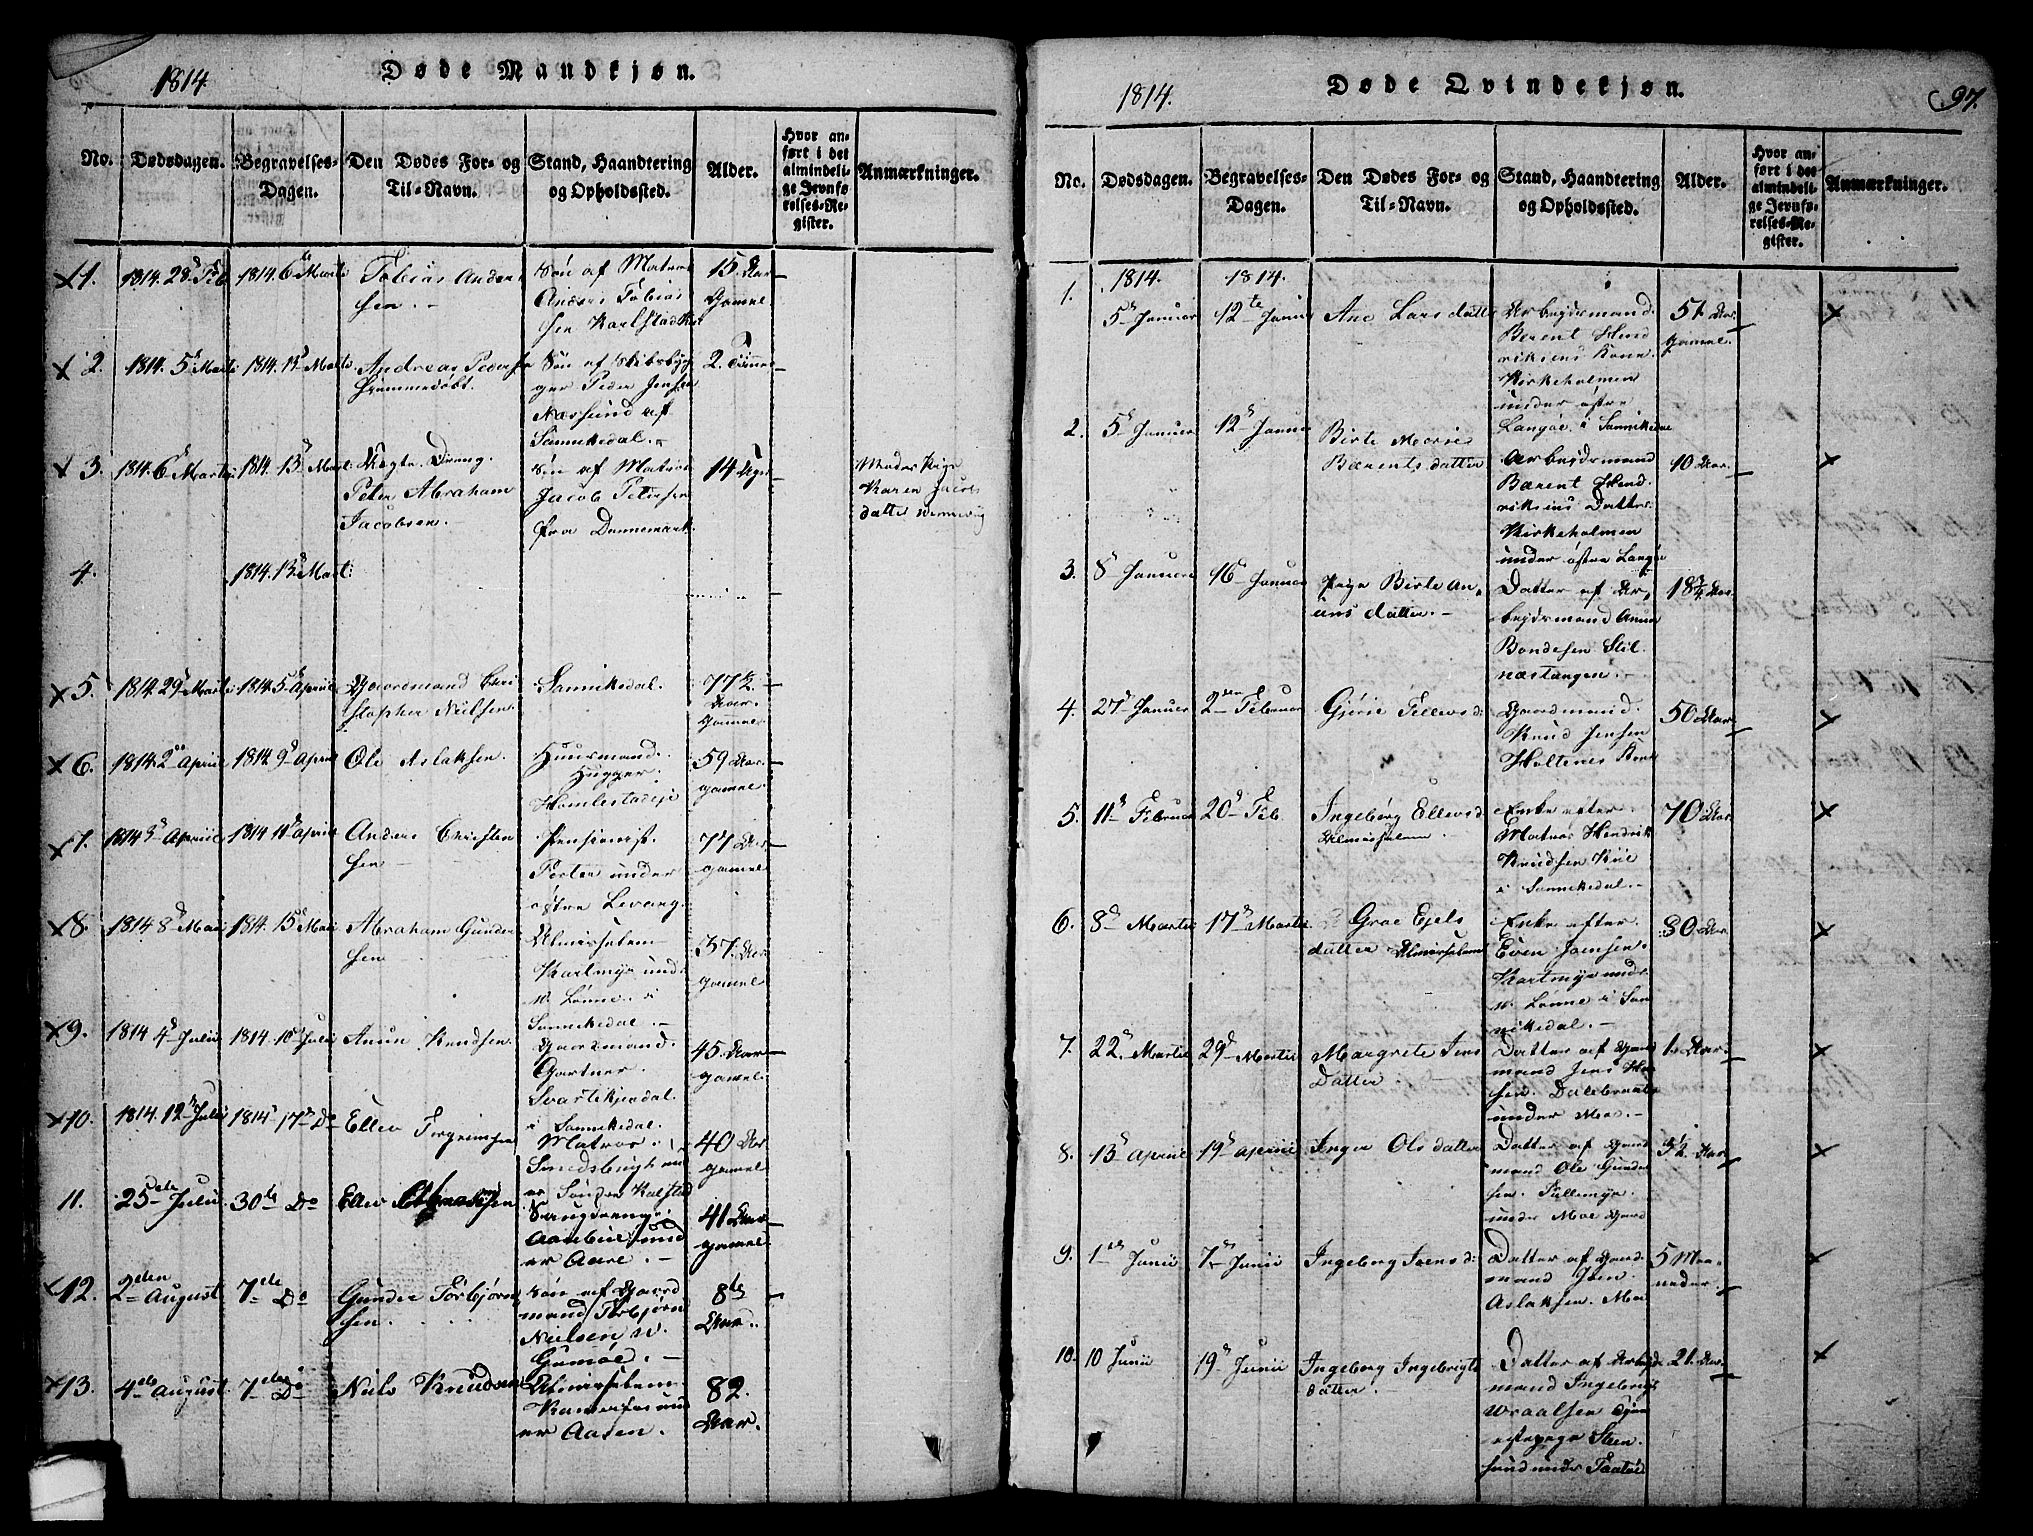 1814.
Døde Mandkjøn.
No.
Dødsdagen.
Begravelses-
Dagen.
Den Dødes For- og
Til-Navn.
Stand, Haandtering
og Opholdssted.
Alder.
Hvor an-
ført i det
almindeli-
ge Jevnfø-
relses-Re-
gister.
Anmærkninger.
x 1.
1814. 28 Feb
1814. 6te Marti
Tobias Anders
sen.
Søn af Matros
Anders Tobias
sen Karlstadkil
15. Aar
Gamel.
x 2.
1814. 5 Marti
1814. 13 Marti
Andreas Peders
hiemmedøbt.
Søn af Skibsbyg
ger Peder Jensen
Næssund af
Sannikedal.
2. Timer
x 3.
1814. 6 Marti
1814. 13 Mart:
Ægte Dreng.
Peter Abraham
Jacobsen.
Søn af Matros
Jacob Petersen
fra Dannemark.
14 Uger
Moder Pige
Karen Jacobs
datter
4.
1814. 13 Mart:
x 5.
1814. 29 Marti
1814. 5 April
Gaardmand Chri
stopher Nielsen.
Sannikedal.
77½.
Aar.
gamel
x 6.
1814. 2 April
1814 9 April
Ole Aslaksen.
Huusmand.
Hugger.
Homlestadeje
59 Aar.
gamel
x 7.
1814 5 April
1814 11 April
Anders Christen
sen
Pensionist.
Porten under
østre Levang.
77 Aar
gamel
x 8.
1814 8 Mai
1814. 15 Mai
Abraham Gunder
sen
Almisselem
Kartmyr und:
r. Lønne. i
Sannikedal.
37. Aar
gamel
x 9.
1814 4 Julii
1814. 10 Julii
Anun Knudsen.
Gaardmand.
Gartner.
Svartekjerdal.
i Sannikedal.
45. Aar
gamel.
x 10.
1814. 12 Julii
1814 17 Do
Ellev Torgrimsen
Matros.
Smedsbugt un
er Søndre Kalstad
40 Aar
gamel
11.
25de Julii
30te Do
Ellev
Aasbue und
er Aare.
41 Aar
gamel.
x 12.
2den August
7de Do
Gunder Torbjørn
sen.
Søn af Gaard
mand Torbjørn
Nielsen
Gumøe.
8te
Aar.
x 13.
4de August
7de Do
Niels Knudsen
Almisselem
und
er Aasen.
82.
Aar.
1814.
Døde Qvindekjøn.
97.
No.
Dødsdagen.
Begravelses-
Dagen.
Den Dødes For- og
Til-Navn.
Stand, Haandtering
og Opholdssted.
Alder.
Hvor an-
ført i det
almindeli-
ge Jevnfø-
relses-Re-
gister.
Anmærkninger.
1.
1814.
5 Januar
1814.
12te Januar
Ane Lars datter
Arbejdsmand.
Berent Hend
riksens Kone
Kirkeholmen
under østre
Langøe. i Sannikedal
51 Aar
gamel.
x
2.
5 Januar
12 Januar
Birte Marie
Bærents datter
Arbejdsmand
Bærent Hend
riksens Datter
Kirkeholmen
under østre Langøe
10 Aar.
x
3.
8 Januar
16 Januar
Pige Birte An
uns datter.
Datter af Ar
bejdsmand Anun
Bondesen Stil
næstangen.
18¾ Aar.
4.
27 Januar
2den Februar
Gjøri Tellevsd:
Gaardmand.
Knud Jensen
Holtenes Kone
50 Aar
x
5.
11 Februar
20 Feb.
Ingebørg Ellevsd
Almisselem.
Enke efter
Matros Hendrik
Knudsen Kiil
i Sannikedal.
70 Aar.
x
6.
8 Martii
17 Martii
Groe Ejels
datter Almisselem
Enke efter.
Even Joensen.
Kartmyr und
r. Lønne i San
nikedal.
80 Aar.
x
7.
22 Martii
29 Martii
Margrete Jens
Datter.
Datter af Gaard
mand Jens
sen.
under Moe.
1. Aar.
x
8.
13 April
19 April
Inger Ols datter
Datter af Gaard
mand Ole Gunder
sen. Tullemyr.
under Moe Gaard
3½ Aar
x
9.
1te Junii
7 Junii
Ingeborg Joensd:
Datter af Gaard
mand Joen.
Aslaksen. Moe
5 Maa
neder.
x
10.
10 Junii
19 Junii
Ingeborg Ingebrigts
datter.
Datter af Arbejd
mand Ingebrigt
Wraalsen
Steen
sund under Taatøe
21. Aar.
x